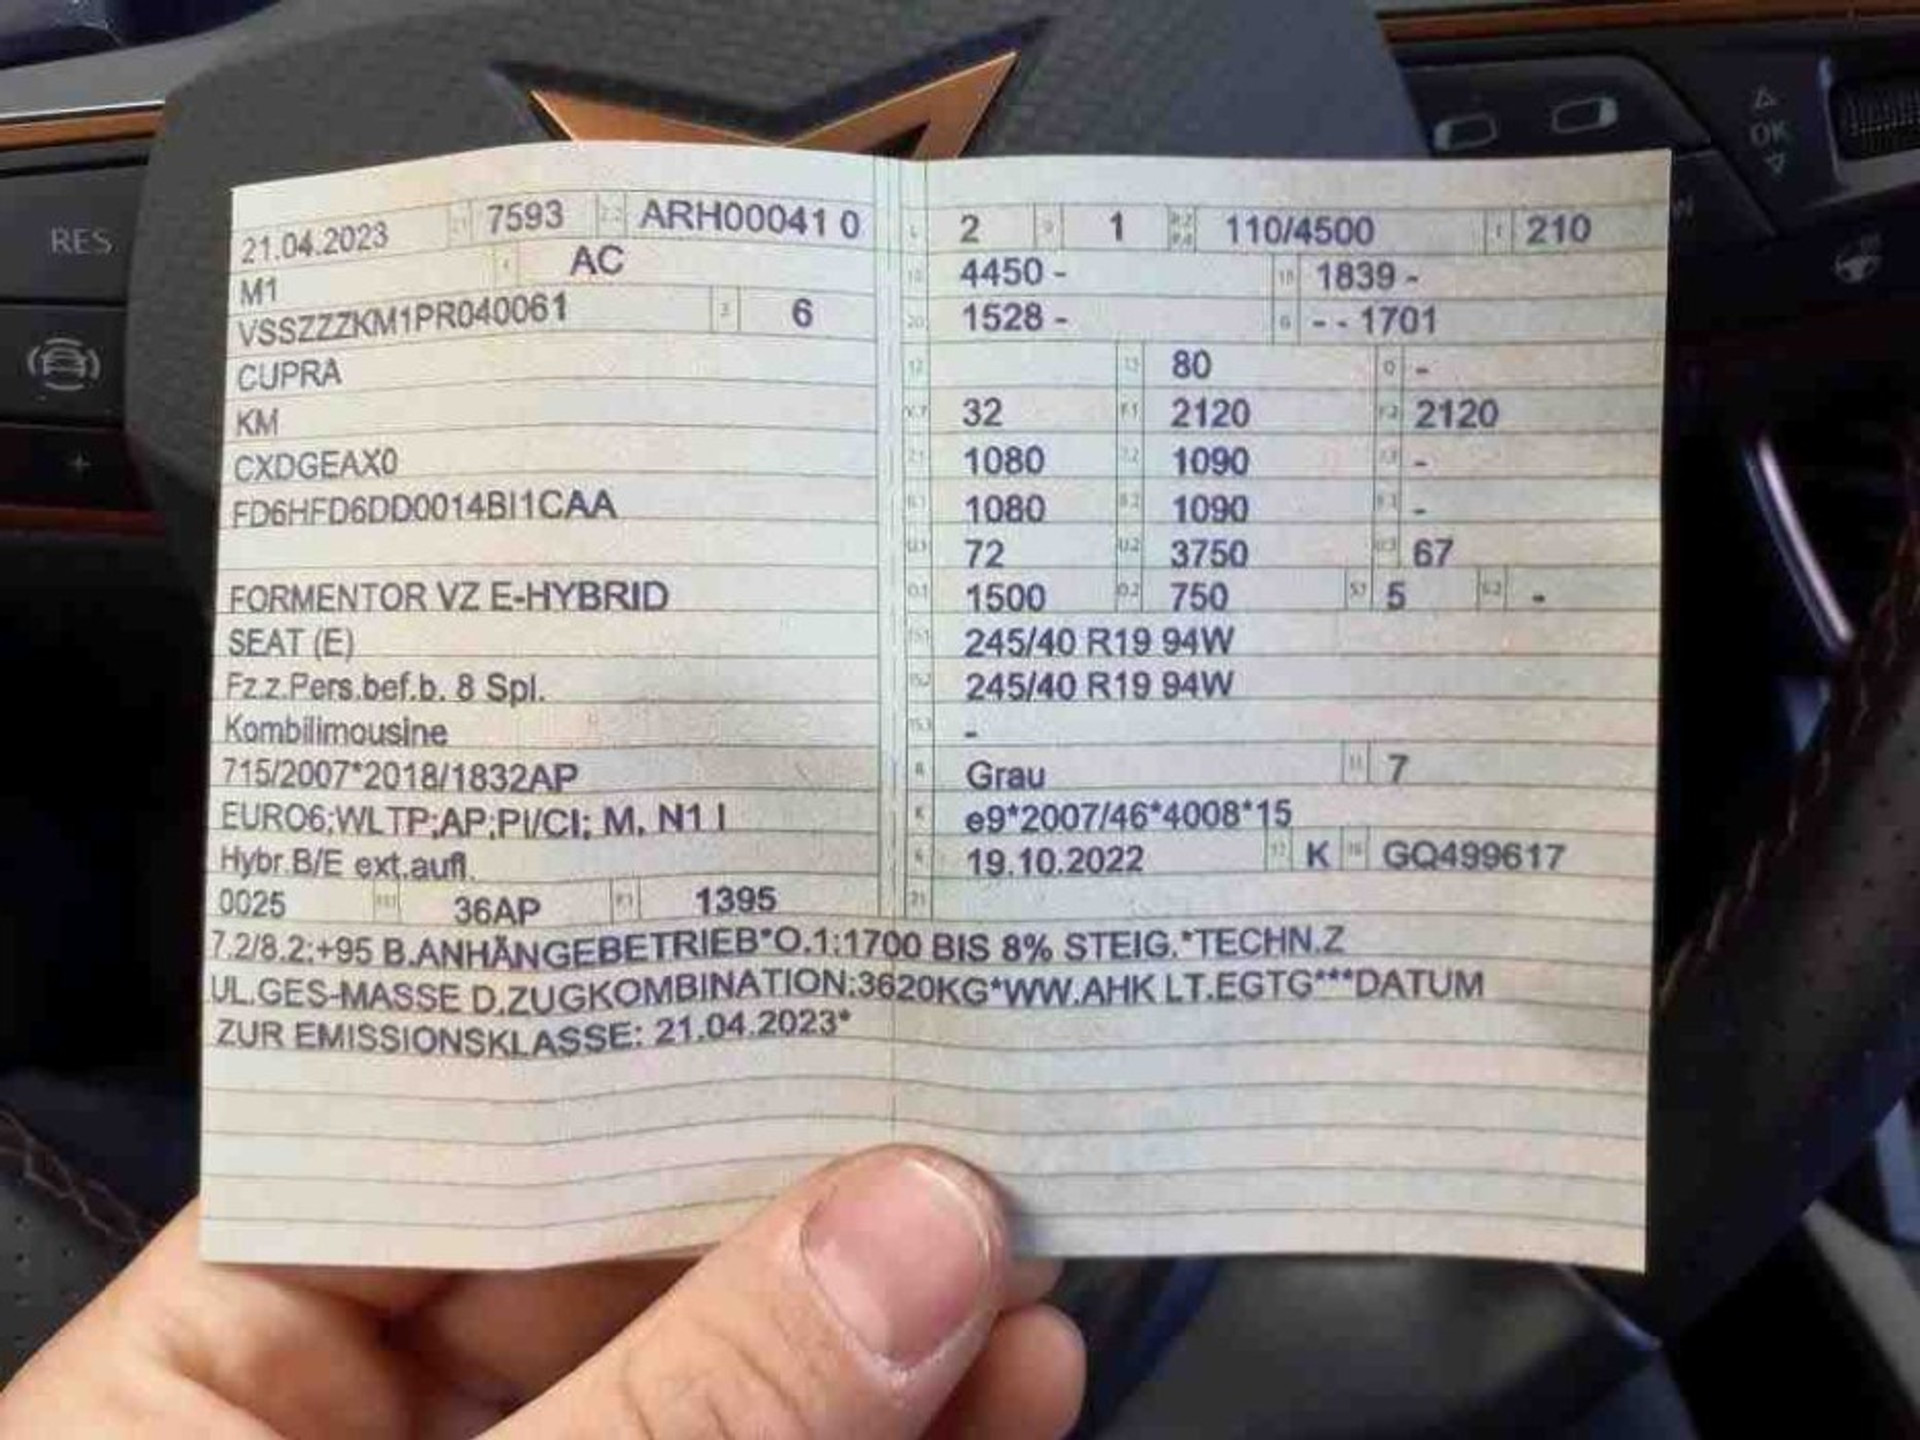 RES
OK
21.04.2023 2.1 7593 2.2 ARH00041 0
M1 4 AC
VSSZZZKM1PR040061 3 6
CUPRA
KM
CXDGEAX0
FD6HFD6DD0014BI1CAA
FORMENTOR VZ E-HYBRID
SEAT (E)
Fz.z.Pers.bef.b. 8 Spl.
Kombilimousine
715/2007*2018/1832AP
EURO6;WLTP;AP;PI/CI; M, N1 I
Hybr.B/E ext.aufl.
0025 36AP P.1 1395
L 2 9 1 P.2 P.4 110/4500 T 210
18 4450 - 19 1839 -
20 1528 - G - - 1701
12 13 80 Q -
V.7 32 F.1 2120 F.2 2120
7.1 1080 7.2 1090 7.3 -
8.1 1080 8.2 1090 8.3 -
U.1 72 U.2 3750 U.3 67
O.1 1500 O.2 750 S.1 5 S.2 -
15.1 245/40 R19 94W
15.2 245/40 R19 94W
15.3 -
R Grau 11 7
K e9*2007/46*4008*15
6 19.10.2022 17 K 16 GQ499617
21
7.2/8.2:+95 B.ANHÄNGEBETRIEB*O.1:1700 BIS 8% STEIG.*TECHN.Z
UL.GES-MASSE D.ZUGKOMBINATION:3620KG*WW.AHK LT.EGTG***DATUM
ZUR EMISSIONSKLASSE: 21.04.2023*